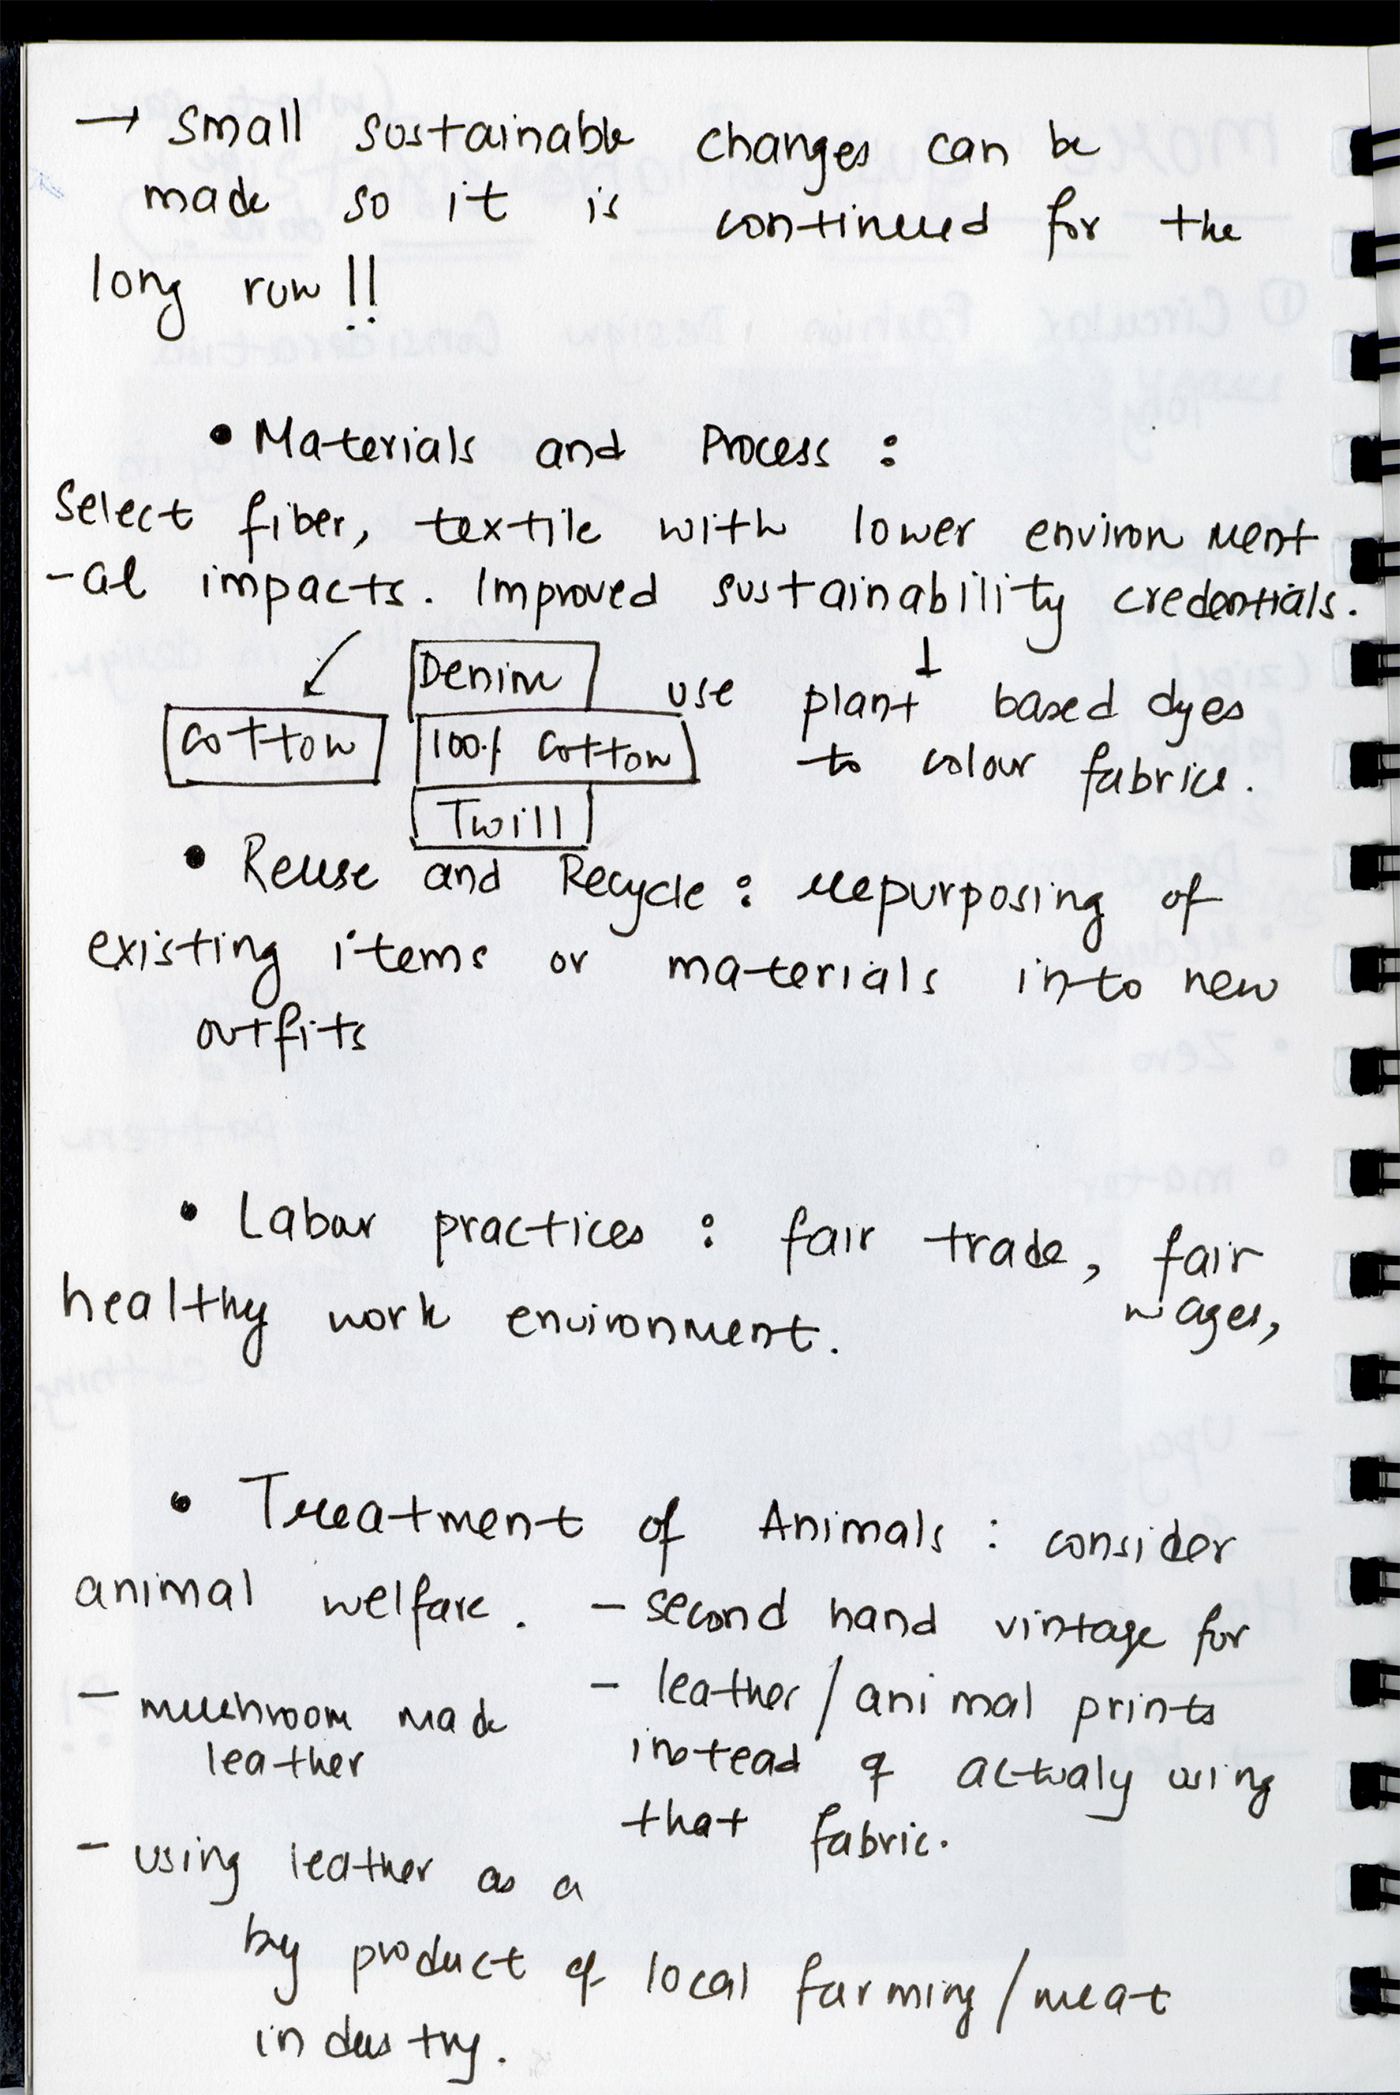 → Small sustainable changes can be
made so it is continued for the
long run !!
• Materials and Process :
Select fiber, textile with lower environ ment
-al impacts. Improved sustainability credentials.
↙ ↓
Denim
use plant based dyes
cotton 100% cotton to colour fabrics.
Twill
• Reuse and Recycle : repurposing of
existing items or materials into new
outfits
• Labor practices : fair trade, fair
wages,
healthy work environment.
• Treatment of Animals : consider
animal welfare. – second hand vintage for
– mushroom made
leather
– leather / animal prints
instead of actualy using
that fabric.
– using leather as a
by product of local farming / meat
industry.